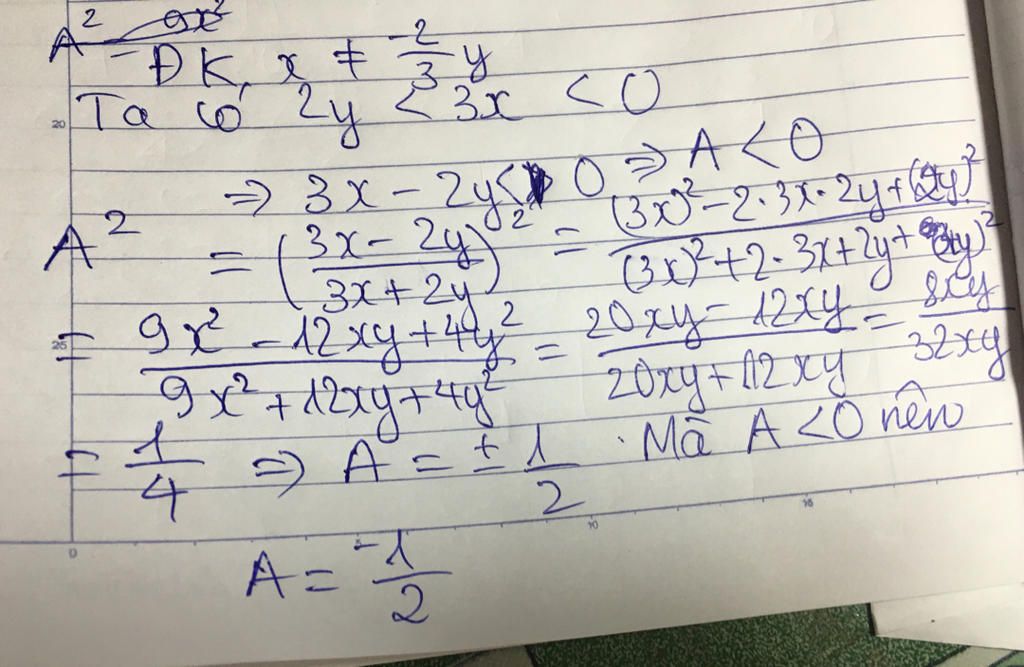 A² = 9x²
ĐK, x ≠ -2/3 y
Ta có 2y < 3x < 0
⇒ 3x - 2y < 0 ⇒ A < 0
A² = (3x - 2y / 3x + 2y)² = (3x)² - 2·3x·2y + (2y)² / (3x)² + 2·3x + 2y + (2y)²
= 9x² - 12xy + 4y² / 9x² + 12xy + 4y² = 20xy - 12xy / 20xy + 12xy = 8xy / 32xy
= 1/4 ⇒ A = ± 1/2 . Mà A < 0 nên
A = -1/2